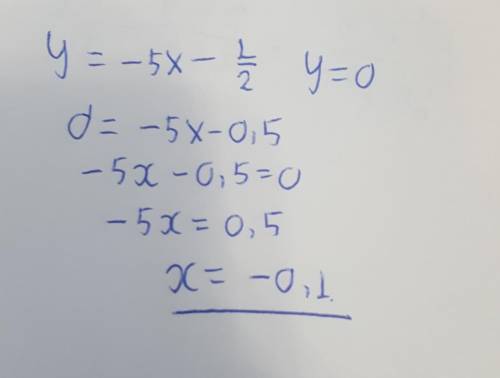 y = -5x - 1/2   y=0
0= -5x-0,5
-5x -0,5=0
-5x= 0,5
x= -0,1